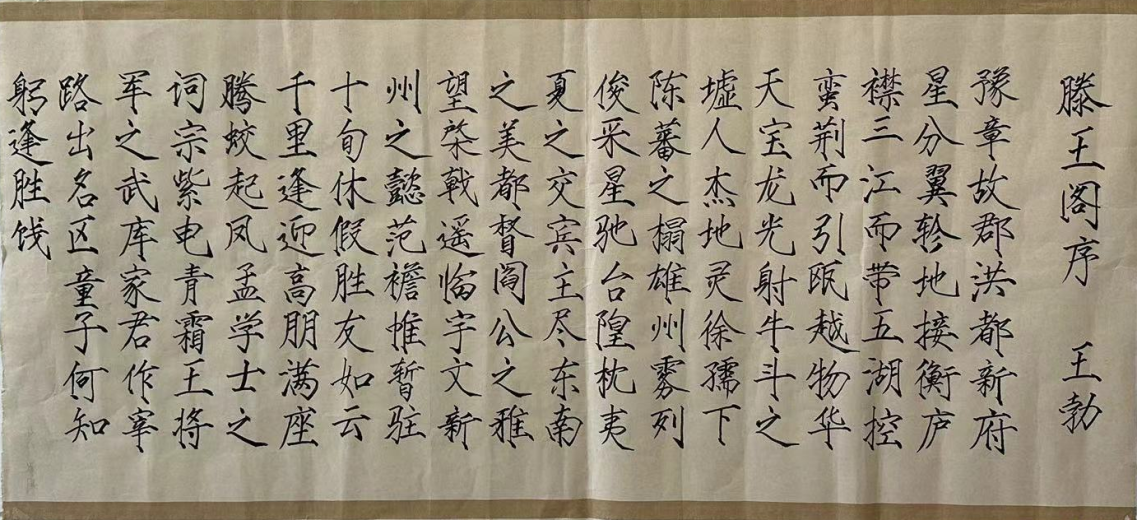 滕王阁序 王勃
豫章故郡洪都新府
星分翼轸地接衡庐
襟三江而带五湖控
蛮荆而引瓯越物华
天宝龙光射牛斗之
墟人杰地灵徐孺下
陈蕃之榻雄州雾列
俊采星驰台隍枕夷
夏之交宾主尽东南
之美都督阎公之雅
望棨戟遥临宇文新
州之懿范襜帷暂驻
十旬休假胜友如云
千里逢迎高朋满座
腾蛟起凤孟学士之
词宗紫电青霜王将
军之武库家君作宰
路出名区童子何知
躬逢胜饯